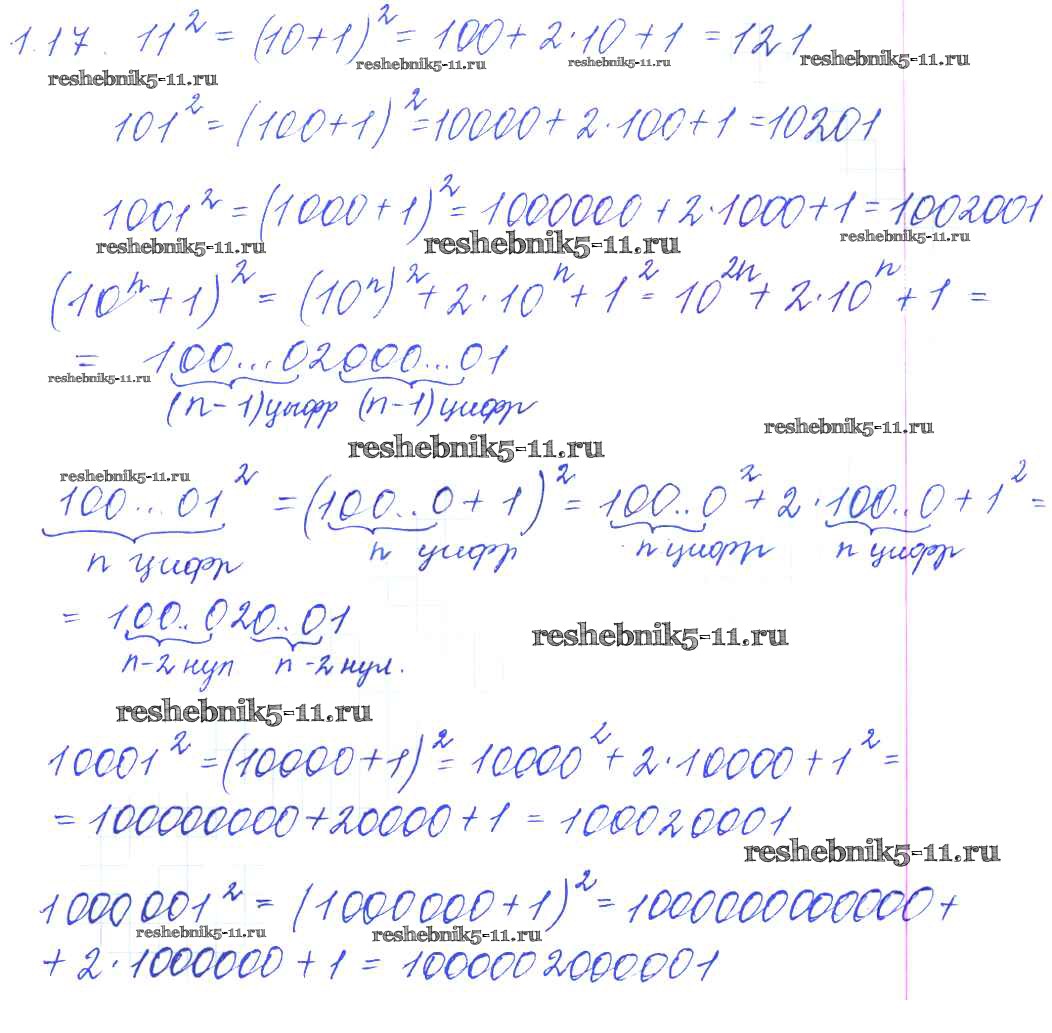 1.17. 11² = (10+1)² = 100 + 2·10 + 1 = 121
reshebnik5-11.ru reshebnik5-11.ru reshebnik5-11.ru reshebnik5-11.ru
101² = (100+1)² = 10000 + 2·100 + 1 = 10201
1001² = (1000+1)² = 1000000 + 2·1000 + 1 = 1002001
reshebnik5-11.ru reshebnik5-11.ru reshebnik5-11.ru
(10ⁿ+1)² = (10ⁿ)² + 2·10ⁿ + 1² = 10²ⁿ + 2·10ⁿ + 1 =
= 100...02000...01
reshebnik5-11.ru
(n-1) цифр (n-1) цифр
reshebnik5-11.ru
reshebnik5-11.ru
reshebnik5-11.ru
100...01² = (100..0 + 1)² = 100..0² + 2·100..0 + 1² =
n цифр n цифр n цифр n цифр
= 100..020..01
reshebnik5-11.ru
n-2 нул n-2 нул.
reshebnik5-11.ru
10001² = (10000+1)² = 10000² + 2·10000 + 1² =
= 100000000 + 20000 + 1 = 100020001
reshebnik5-11.ru
1000001² = (1000000+1)² = 1000000000000 +
reshebnik5-11.ru reshebnik5-11.ru
+ 2·1000000 + 1 = 1000002000001